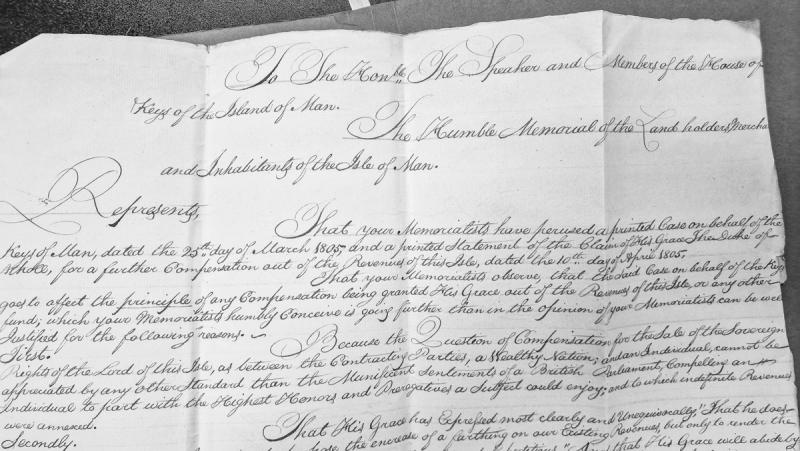 To The Hon.ble The Speaker and Members of the House of
Keys of the Island of Man.
The Humble Memorial of the Land holders, Mercha
and Inhabitants of the Isle of Man.
Represents,
That your Memorialists have perused a printed Case on behalf of the
Keys of Man, dated the 25th day of March 1805, and a printed Statement of the Claim of His Grace The Duke of
Atholl, for a further Compensation out of the Revenues of this Isle, dated the 10th day of April 1805.
That your Memorialists observe, that the said Case on behalf of the Keys
goes to affect the principle of any Compensation being granted His Grace out of the Revenues of this Isle, or any other
fund; which your Memorialists humbly Conceive is going further than in the opinion of your Memorialists can be well
Justified for the following reasons.
First. Because the Question of Compensation for the Sale of the Sovereign
Rights of the Lord of this Isle, as between the Contracting Parties, a Wealthy Nation; and an Individual, cannot be
appreciated by any other Standard than the Munificent Sentiments of a British Parliament, Compelling an
Individual to part with the Highest Honors and Prerogatives a Subject could enjoy; and to which indefinite Revenues
were annexed.
Secondly. That His Grace has Expressed most clearly and "Unequivocally," That he does
the encrease of a farthing on our Existing Revenues, but only to render the
that His Grace will abide by